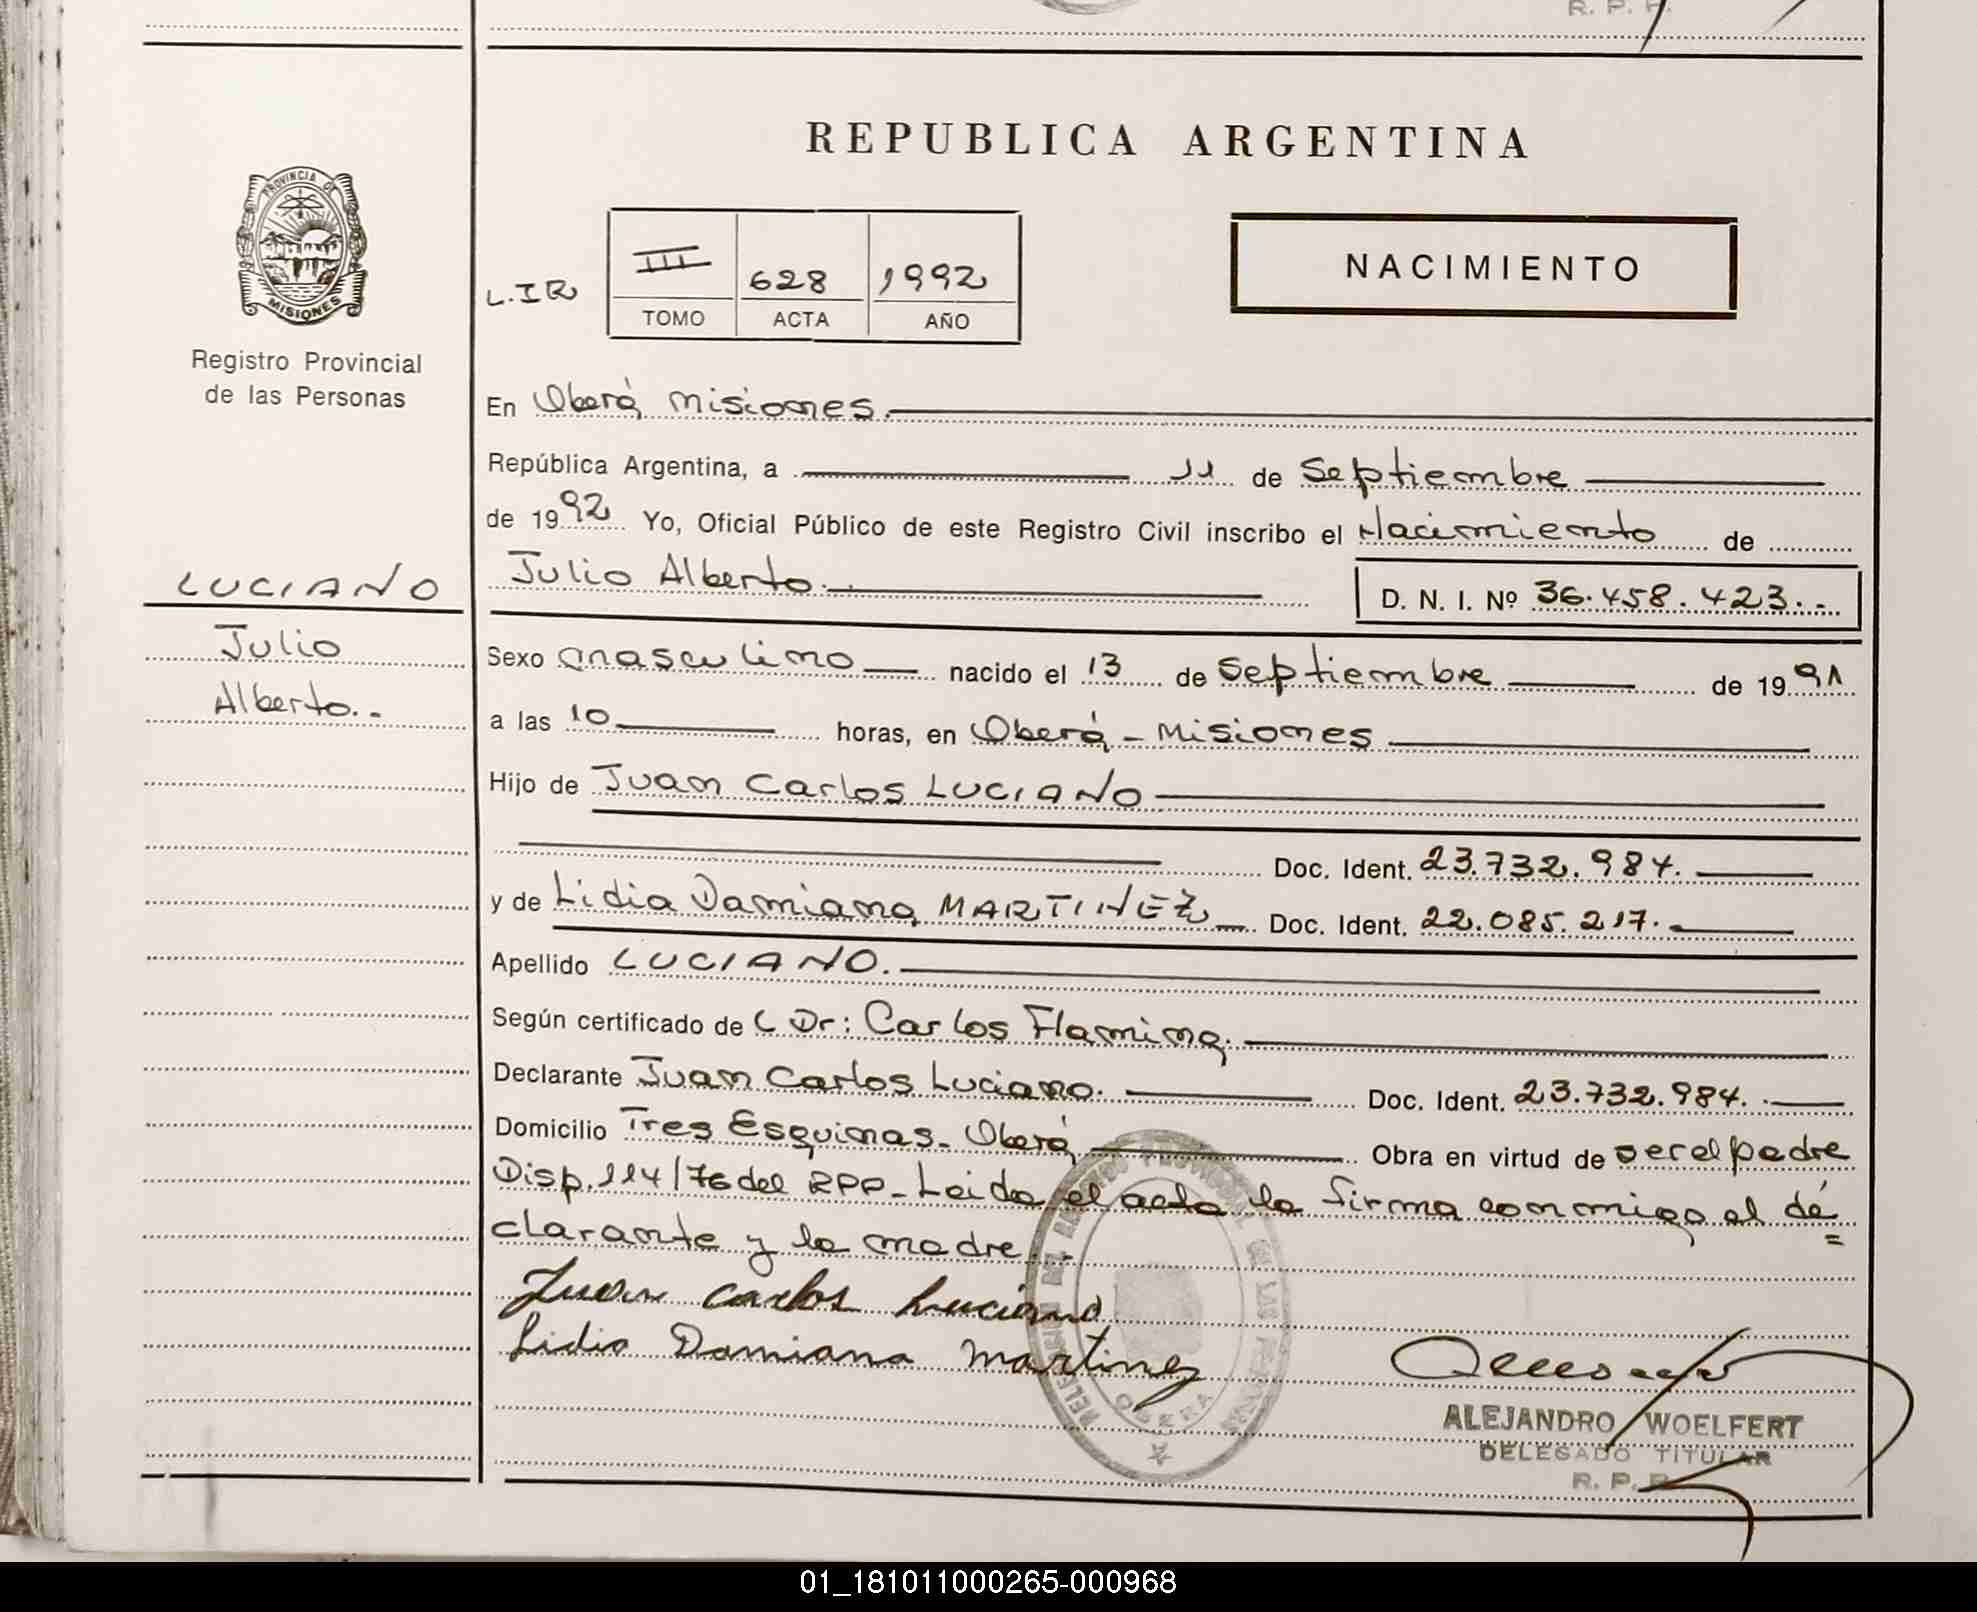 R. P. P.
REPUBLICA ARGENTINA
PROVINCIA DE
MISIONES
Registro Provincial
de las Personas
L.IR
III 628 1992
TOMO ACTA AÑO
NACIMIENTO
En Oberá Misiones.
República Argentina, a 11 de Septiembre
de 1992 Yo, Oficial Público de este Registro Civil inscribo el Nacimiento de
LUCIANO
Julio
Alberto.-
Julio Alberto.- D. N. I. Nº 36.458.423.-
Sexo masculino nacido el 13 de Septiembre de 1991
a las 10 horas, en Oberá - Misiones
Hijo de Juan Carlos LUCIANO
Doc. Ident. 23.732.984.
y de Lidia Damiana MARTINEZ Doc. Ident. 22.085.217.
Apellido LUCIANO.
Según certificado de Dr: Carlos Flaming.
Declarante Juan Carlos Luciano. Doc. Ident. 23.732.984.
Domicilio Tres Esquinas - Oberá Obra en virtud de ser el padre
Disp. 114/76 del RPP - Leida el acta la firma conmigo el de=
clarante y la madre.-
Juan Carlos Luciano
Lidia Damiana Martinez
DELEGACION DEL REGISTRO PROVINCIAL DE LAS PERSONAS
OBERA
ALEJANDRO WOELFERT
DELEGADO TITULAR
R. P. P.
01_181011000265-000968